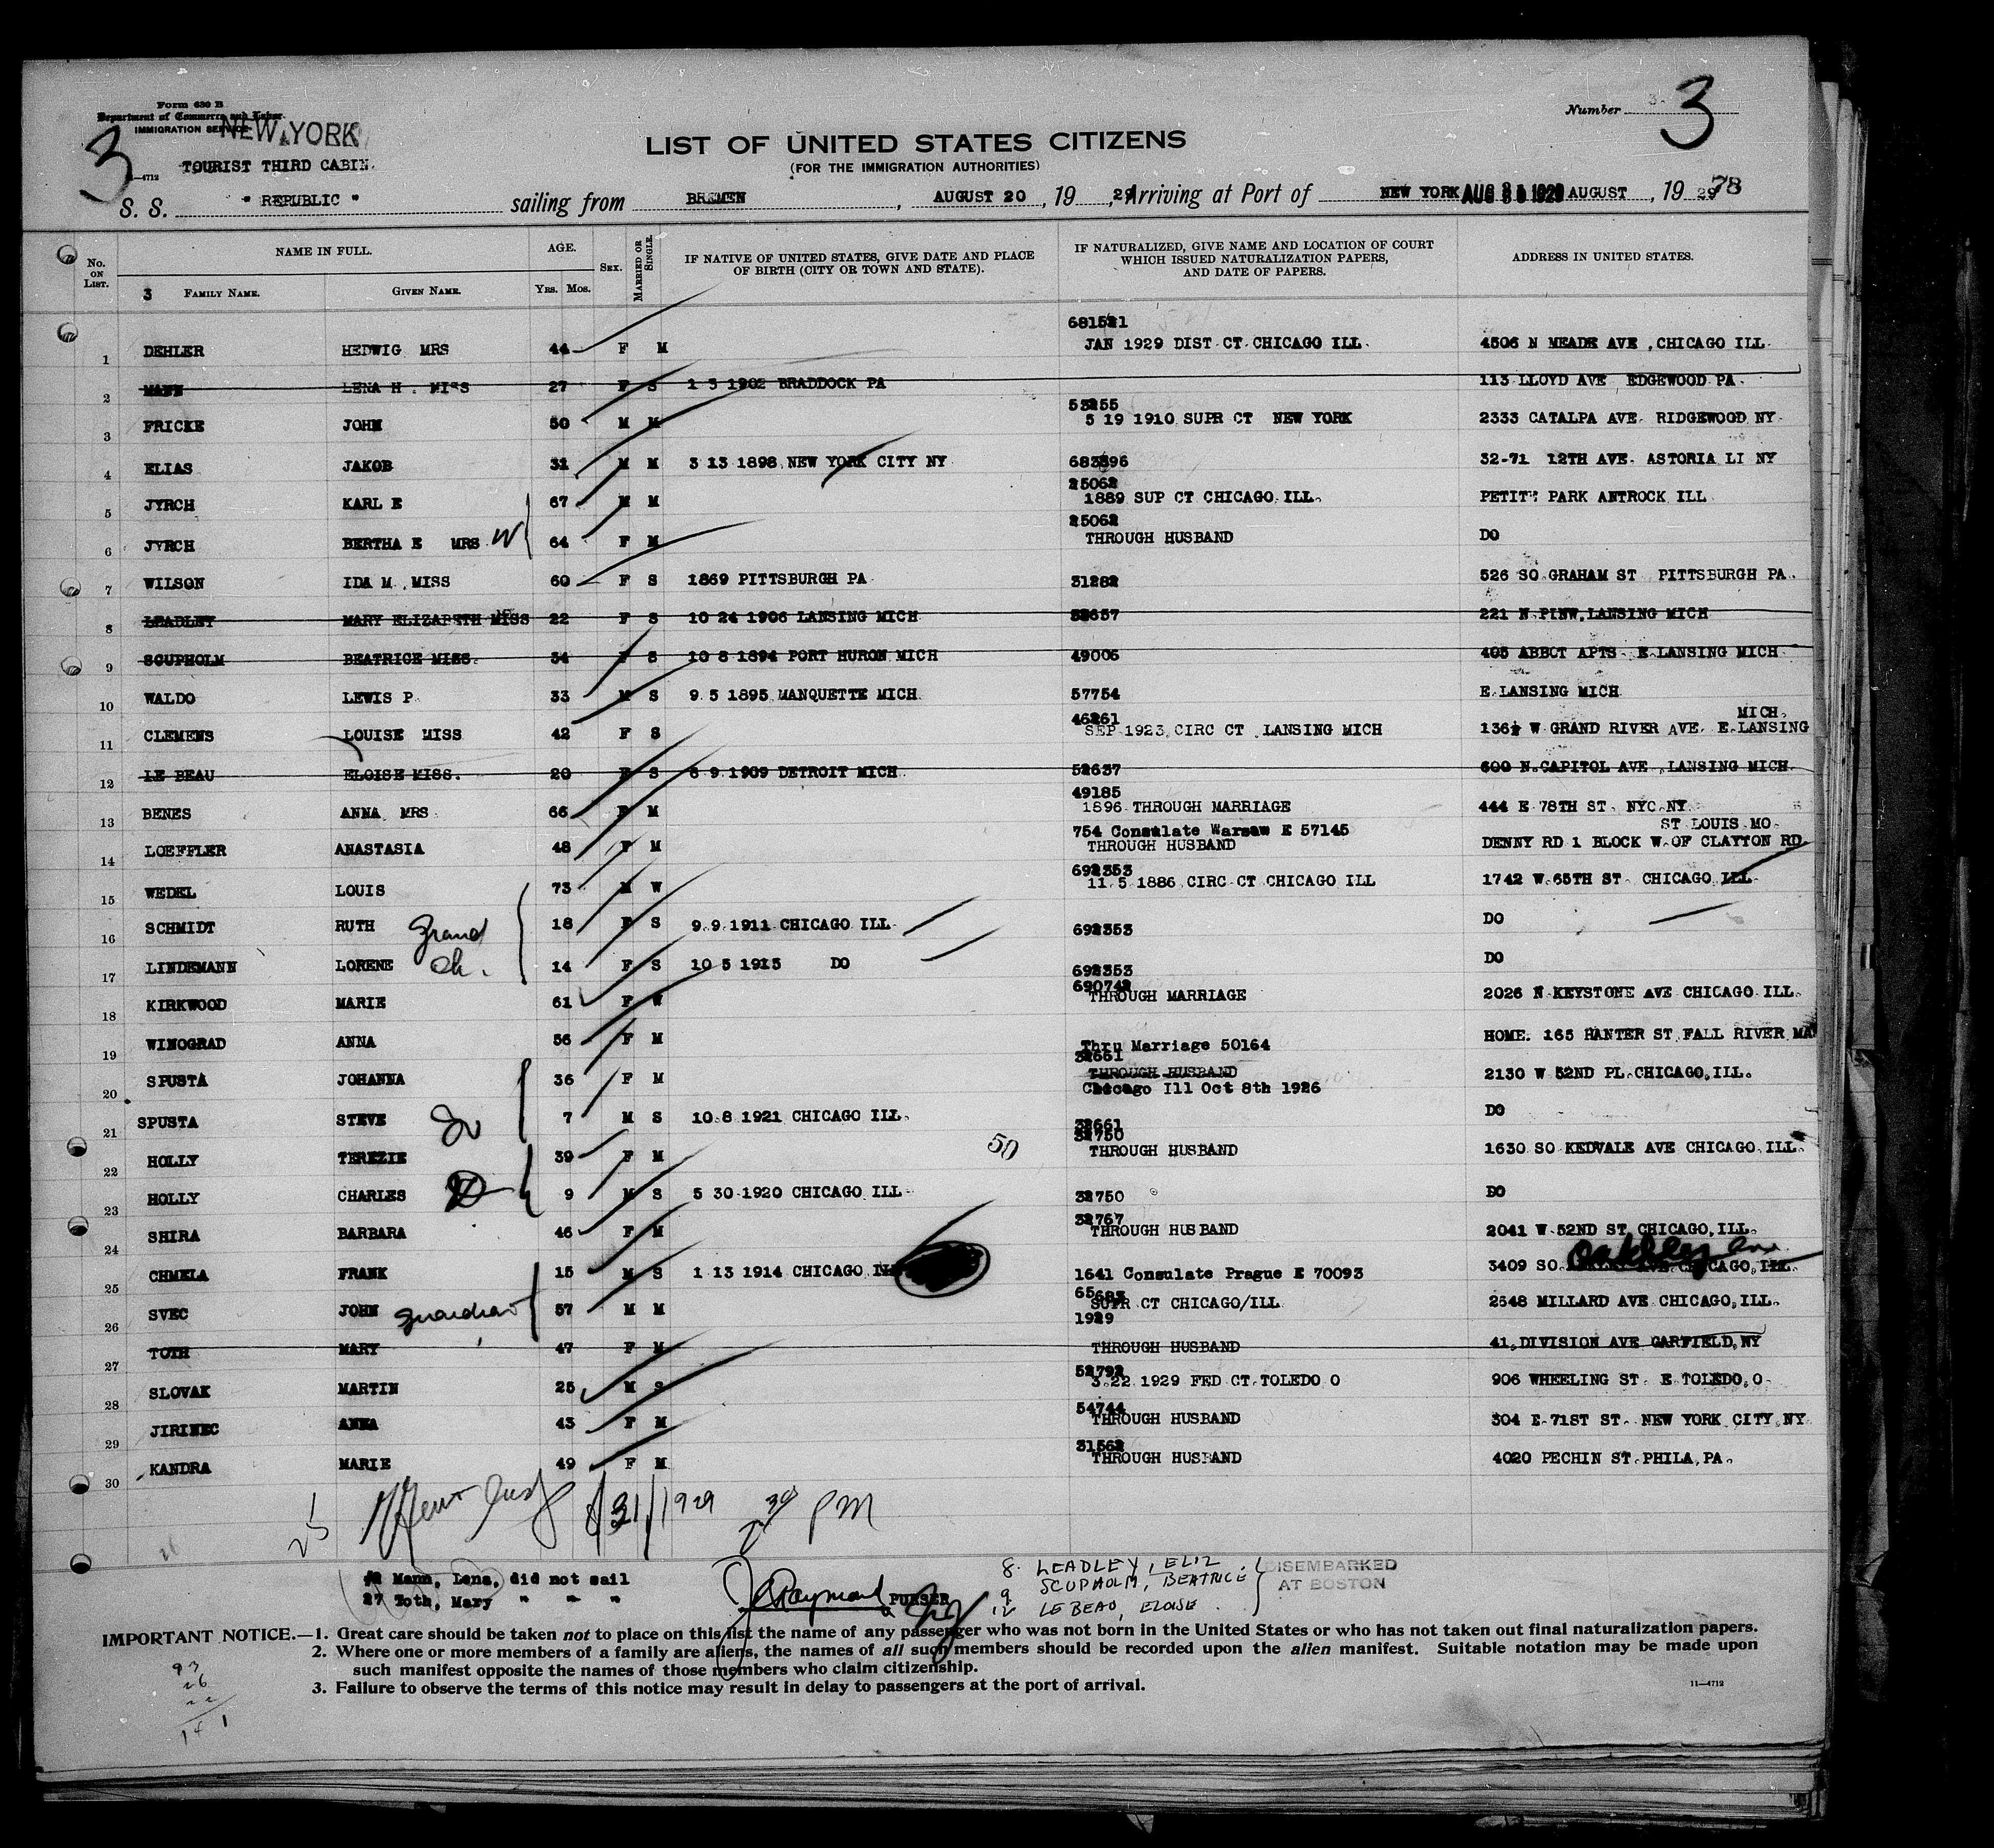 Form 630 B
Department of Commerce and Labor
IMMIGRATION SERVICE
NEW YORK
3
TOURIST THIRD CABIN.
11—4712
Number 3
LIST OF UNITED STATES CITIZENS
(FOR THE IMMIGRATION AUTHORITIES)
S. S. " REPUBLIC " sailing from BREMEN, AUGUST 20, 1929 Arriving at Port of NEW YORK AUGUST, 1929 78
No. ON LIST. NAME IN FULL. AGE. SEX. MARRIED OR SINGLE. IF NATIVE OF UNITED STATES, GIVE DATE AND PLACE OF BIRTH (CITY OR TOWN AND STATE). IF NATURALIZED, GIVE NAME AND LOCATION OF COURT WHICH ISSUED NATURALIZATION PAPERS, AND DATE OF PAPERS. ADDRESS IN UNITED STATES.
3 FAMILY NAME. GIVEN NAME. YRS. MOS.
681521
1 DEHLER HEDWIG MRS 44 F M JAN 1929 DIST CT CHICAGO ILL. 4506 N MEADE AVE, CHICAGO ILL.
2 MANN LENA H. MISS 27 F S 1 3 1902 BRADDOCK PA 113 LLOYD AVE EDGEWOOD PA.
53255
3 FRICKE JOHN 50 M M 5 19 1910 SUPR CT NEW YORK 2333 CATALPA AVE. RIDGEWOOD NY.
4 ELIAS JAKOB 31 M M 3 13 1898 NEW YORK CITY NY 683896 32-71 12TH AVE. ASTORIA LI NY
25062
5 JYRCH KARL E 67 M M 1889 SUP CT CHICAGO ILL. PETITE PARK ANTROCK ILL
25062
6 JYRCH BERTHA E MRS W 64 F M THROUGH HUSBAND DO
7 WILSON IDA M. MISS 60 F S 1869 PITTSBURGH PA 31282 526 SO GRAHAM ST PITTSBURGH PA.
8 LEADLEY MARY ELIZABETH MISS 22 F S 10 24 1906 LANSING MICH 52637 221 N PINW, LANSING MICH
9 SCUPHOLM BEATRICE MISS. 34 F S 10 8 1894 PORT HURON MICH 49006 405 ABBCT APTS E LANSING MICH
10 WALDO LEWIS P. 33 M S 9.5 1895 MANQUETTE MICH. 57754 E LANSING MICH
46261 MICH.
11 CLEMENS LOUISE MISS 42 F S SEP 1923 CIRC CT LANSING MICH 136½ W GRAND RIVER AVE. E.LANSING
12 LE BEAU ELOISE MISS. 20 F S 8 9 1909 DETROIT MICH. 52637 600 N.CAPITOL AVE, LANSING MICH.
49185
13 BENES ANNA MRS 66 F M 1896 THROUGH MARRIAGE 444 E 78TH ST. NYC NY.
754 Consulate Warsaw E 57145 ST LOUIS MO.
14 LOEFFLER ANASTASIA 48 F M THROUGH HUSBAND DENNY RD 1 BLOCK W.OF CLAYTON RD
692353
15 WEDEL LOUIS 73 M W 11.5 1886 CIRC CT CHICAGO ILL 1742 W 65TH ST CHICAGO ILL
16 SCHMIDT RUTH grand 18 F S 9.9.1911 CHICAGO ILL. 692353 DO
17 LINDEMANN LORENE ch. 14 F S 10 5 1915 DO 692353 DO
690742
18 KIRKWOOD MARIE 61 F W THROUGH MARRIAGE 2026 N KEYSTONE AVE CHICAGO ILL.
19 WINOGRAD ANNA 56 F M Thru Marriage 50164 HOME. 165 HANTER ST FALL RIVER MA
32661
20 SPUSTA JOHANNA 36 F M THROUGH HUSBAND 2130 W 52ND PL.CHICAGO, ILL.
Chicago Ill Oct 8th 1926
21 SPUSTA STEVE 7 M S 10.8 1921 CHICAGO ILL. 32661 DO
50 32750
22 HOLLY TEREZIE 39 F M THROUGH HUSBAND 1630 SO KEDVALE AVE CHICAGO, ILL.
23 HOLLY CHARLES 9 M S 5 30 1920 CHICAGO ILL. 32750 DO
32767
24 SHIRA BARBARA 46 F M THROUGH HUSBAND 2041 W 52ND ST CHICAGO, ILL.
Oakley Ave
25 CHMELA FRANK 15 M S 1 13 1914 CHICAGO ILL 1641 Consulate Prague E 70093 3409 SO. AVE CHICAGO, ILL.
26 SVEC JOHN guardian 57 M M SUPR CT CHICAGO/ILL 2548 MILLARD AVE CHICAGO, ILL.
1929
27 TOTH MARY 47 F M THROUGH HUSBAND 41, DIVISION AVE GARFIELD, NY
52792
28 SLOVAK MARTIN 25 M S 3.22 1929 FED CT.TOLEDO O 906 WHEELING ST. E TOLEDO, O.
54744
29 JIRINEC ANNA 43 F M THROUGH HUSBAND 304 E 71ST ST. NEW YORK CITY NY
31562
30 KANDRA MARIE 49 F M THROUGH HUSBAND 4020 PECHIN ST PHILA, PA.
25 8/31/1929 PM
2 Mann, Lena, did not sail
27 Toth, Mary " " "
PURSER
8. LEADLEY, ELIZ.
9 SCUPHOLM, BEATRICE
12 LE BEAU, ELOISE.
DISEMBARKED
AT BOSTON
IMPORTANT NOTICE.—1. Great care should be taken not to place on this list the name of any passenger who was not born in the United States or who has not taken out final naturalization papers.
2. Where one or more members of a family are aliens, the names of all such members should be recorded upon the alien manifest. Suitable notation may be made upon
such manifest opposite the names of those members who claim citizenship.
3. Failure to observe the terms of this notice may result in delay to passengers at the port of arrival.
11—4712
93
26
22
141